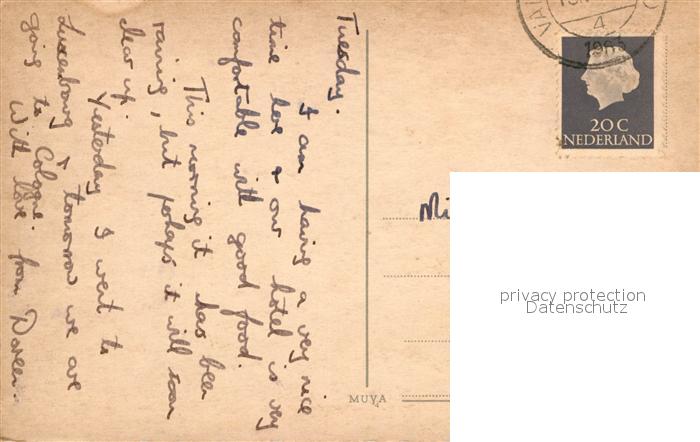 Tuesday.
I am having a very nice
time here & our hotel is very
comfortable with good food.
This morning it has been
raining, but perhaps it will soon
clear up.
Yesterday I went to
Luxembourg & tomorrow we are
going to Cologne.
With love from Doreen.
1963
4
20 C
NEDERLAND
Mi
MUVA
privacy protection
Datenschutz